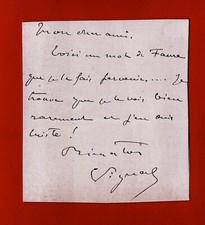 Mon cher ami.
Voici un mot de Faure
que je te fais parvenir... Je
trouve que je te vois bien
rarement et j'en suis
triste !
Bien à toi